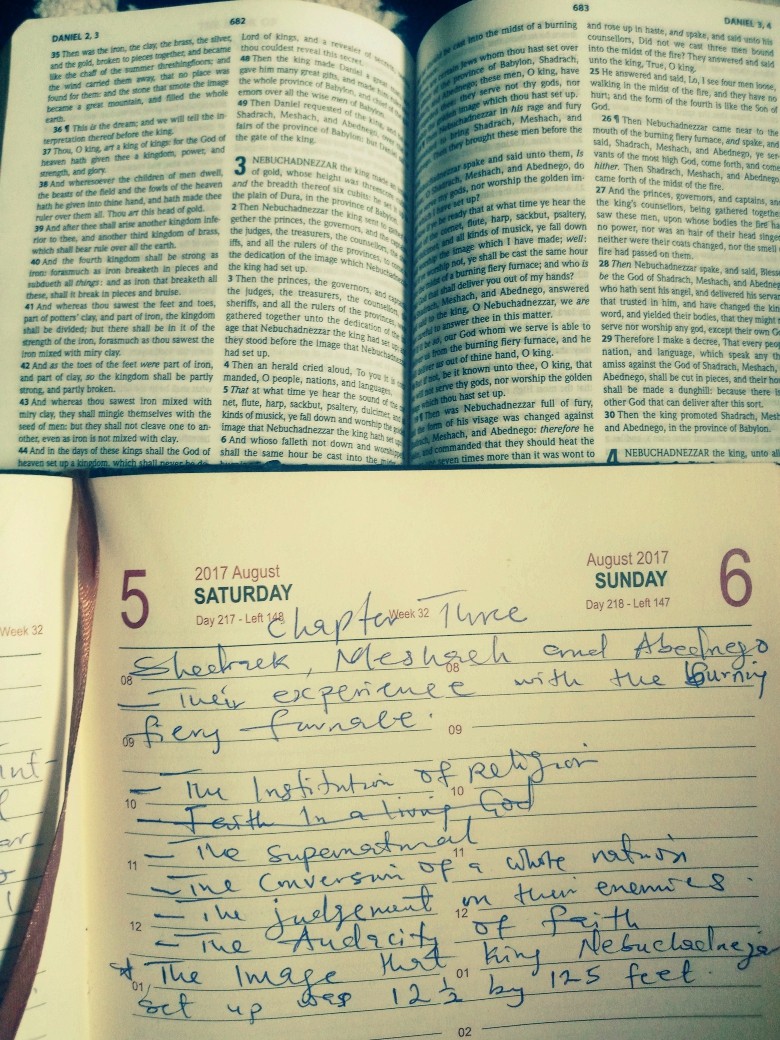 682
DANIEL 2, 3
35 Then was the iron, the clay, the brass, the silver,
and the gold, broken to pieces together, and became
like the chaff of the summer threshingfloors; and
the wind carried them away, that no place was
found for them: and the stone that smote the image
became a great mountain, and filled the whole
earth.
36 ¶ This is the dream; and we will tell the in-
terpretation thereof before the king.
37 Thou, O king, art a king of kings: for the God of
heaven hath given thee a kingdom, power, and
strength, and glory.
38 And wheresoever the children of men dwell,
the beasts of the field and the fowls of the heaven
hath he given into thine hand, and hath made thee
ruler over them all. Thou art this head of gold.
39 And after thee shall arise another kingdom infe-
rior to thee, and another third kingdom of brass,
which shall bear rule over all the earth.
40 And the fourth kingdom shall be strong as
iron: forasmuch as iron breaketh in pieces and
subdueth all things: and as iron that breaketh all
these, shall it break in pieces and bruise.
41 And whereas thou sawest the feet and toes,
part of potters' clay, and part of iron, the kingdom
shall be divided; but there shall be in it of the
strength of the iron, forasmuch as thou sawest the
iron mixed with miry clay.
42 And as the toes of the feet were part of iron,
and part of clay, so the kingdom shall be partly
strong, and partly broken.
43 And whereas thou sawest iron mixed with
miry clay, they shall mingle themselves with the
seed of men: but they shall not cleave one to an-
other, even as iron is not mixed with clay.
44 And in the days of these kings shall the God of
heaven set up a kingdom, which shall never be
Lord of kings, and a revealer of secrets,
thou couldest reveal this secret.
48 Then the king made Daniel a great
gave him many great gifts, and made
the whole province of Babylon, and chief
ernors over all the wise men of Babylon.
49 Then Daniel requested of the king, and
Shadrach, Meshach, and Abednego, over the
fairs of the province of Babylon: but Daniel
the gate of the king.
3 NEBUCHADNEZZAR the king made
of gold, whose height was threescore
and the breadth thereof six cubits: he set
the plain of Dura, in the province of Babylon.
2 Then Nebuchadnezzar the king sent to
gether the princes, the governors, and the
the judges, the treasurers, the counsellors,
iffs, and all the rulers of the provinces, to
the dedication of the image which Nebuchadnezzar
the king had set up.
3 Then the princes, the governors, and
the judges, the treasurers, the counsellors,
sheriffs, and all the rulers of the provinces,
gathered together unto the dedication of the
age that Nebuchadnezzar the king had set up;
they stood before the image that Nebuchadnezzar
had set up.
4 Then an herald cried aloud, To you it is
manded, O people, nations, and languages,
5 That at what time ye hear the sound of the
net, flute, harp, sackbut, psaltery, dulcimer, and
kinds of musick, ye fall down and worship the
image that Nebuchadnezzar the king hath set up:
6 And whoso falleth not down and worshippeth
shall the same hour be cast into the midst
683
DANIEL 3, 4
be cast into the midst of a burning
certain Jews whom thou hast set over
the province of Babylon, Shadrach,
Abednego; these men, O king, have
thee: they serve not thy gods, nor
image which thou hast set up.
Nebuchadnezzar in his rage and fury
to bring Shadrach, Meshach, and
they brought these men before the
spake and said unto them, Is
Shadrach, Meshach, and Abednego, do
my gods, nor worship the golden im-
have set up?
be ready that at what time ye hear the
cornet, flute, harp, sackbut, psaltery,
and all kinds of musick, ye fall down
the image which I have made; well:
worship not, ye shall be cast the same hour
of a burning fiery furnace; and who is
shall deliver you out of my hands?
Meshach, and Abednego, answered
the king, O Nebuchadnezzar, we are
to answer thee in this matter.
so, our God whom we serve is able to
us from the burning fiery furnace, and he
deliver us out of thine hand, O king.
if not, be it known unto thee, O king, that
not serve thy gods, nor worship the golden
which thou hast set up.
¶ Then was Nebuchadnezzar full of fury,
the form of his visage was changed against
Meshach, and Abednego: therefore he
and commanded that they should heat the
seven times more than it was wont to
and rose up in haste, and spake, and said unto his
counsellors, Did not we cast three men bound
into the midst of the fire? They answered and said
unto the king, True, O king.
25 He answered and said, Lo, I see four men loose,
walking in the midst of the fire, and they have no
hurt; and the form of the fourth is like the Son of
God.
26 ¶ Then Nebuchadnezzar came near to the
mouth of the burning fiery furnace, and spake, and
said, Shadrach, Meshach, and Abednego, ye ser-
vants of the most high God, come forth, and come
hither. Then Shadrach, Meshach, and Abednego,
came forth of the midst of the fire.
27 And the princes, governors, and captains, and
the king's counsellors, being gathered together,
saw these men, upon whose bodies the fire had
no power, nor was an hair of their head singed,
neither were their coats changed, nor the smell of
fire had passed on them.
28 Then Nebuchadnezzar spake, and said, Blessed
be the God of Shadrach, Meshach, and Abednego,
who hath sent his angel, and delivered his servants
that trusted in him, and have changed the king's
word, and yielded their bodies, that they might not
serve nor worship any god, except their own God.
29 Therefore I make a decree, That every people,
nation, and language, which speak any thing
amiss against the God of Shadrach, Meshach, and
Abednego, shall be cut in pieces, and their houses
shall be made a dunghill: because there is no
other God that can deliver after this sort.
30 Then the king promoted Shadrach, Meshach,
and Abednego, in the province of Babylon.
4 NEBUCHADNEZZAR the king, unto all
Week 32
5
2017 August
SATURDAY
Day 217 - Left 148
Week 32
August 2017
SUNDAY
Day 218 - Left 147
6
Chapter Three
Shedrack, Meshach and Abednego
08
08
— Their experience with the burning
fiery furnace.
09
09
— The Institution of religion
10
10
— Faith In a living God
— The Supernatural
11
11
— The Conversion of a whole nation
— The judgement on their enemies.
12
12
— The Audacity of faith
* The Image that King Nebuchadnejar
01
01
set up was 12½ by 125 feet.
02